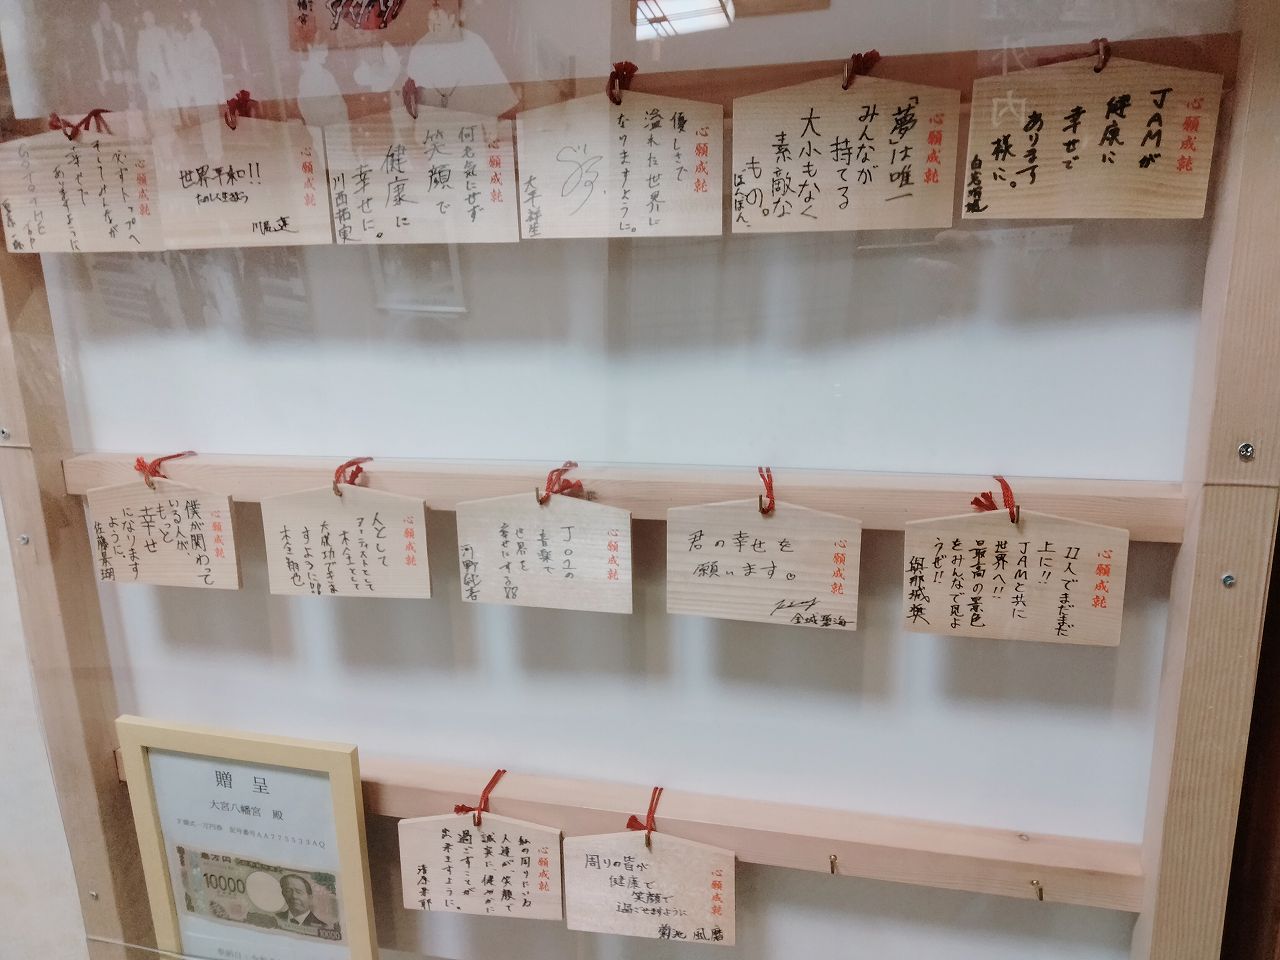 心願成就
JAMが
健康に
幸せで
あります
様に。
心願成就
「夢」は唯一
みんなが
持てる
大小もなく
素敵な
もの。
心願成就
優しさで
溢れた世界に
なりますように。
大平祥生
心願成就
何も気にせず
笑顔で
健康に
幸せに。
川西拓実
心願成就
世界平和!!
たのしい人生を
川尻蓮
心願成就
そしてみんなが
幸せで
ありますように
心願成就
11人でまだまだ
上に!!
JAMと共に
世界へ!!
最高の景色
をみんなで見よ
うぜ!!
與那城奨
心願成就
君の幸せを
願います。
金城碧海
心願成就
JO1の
音楽で
世界を
幸せにする
河野純喜
心願成就
人として
アーティストとして
木全として
大成功できま
すように!!
木全翔也
心願成就
僕が関わって
いる人が、
もっと
幸せ
になります
ように。
佐藤景瑚
心願成就
私の周りにいる
人達が笑顔で
誠実に健やかに
過ごすことが
出来ますように。
心願成就
周りの皆が
健康で
笑顔で
過ごせますように
菊池風磨
贈呈
大宮八幡宮 殿
壱万円
10000